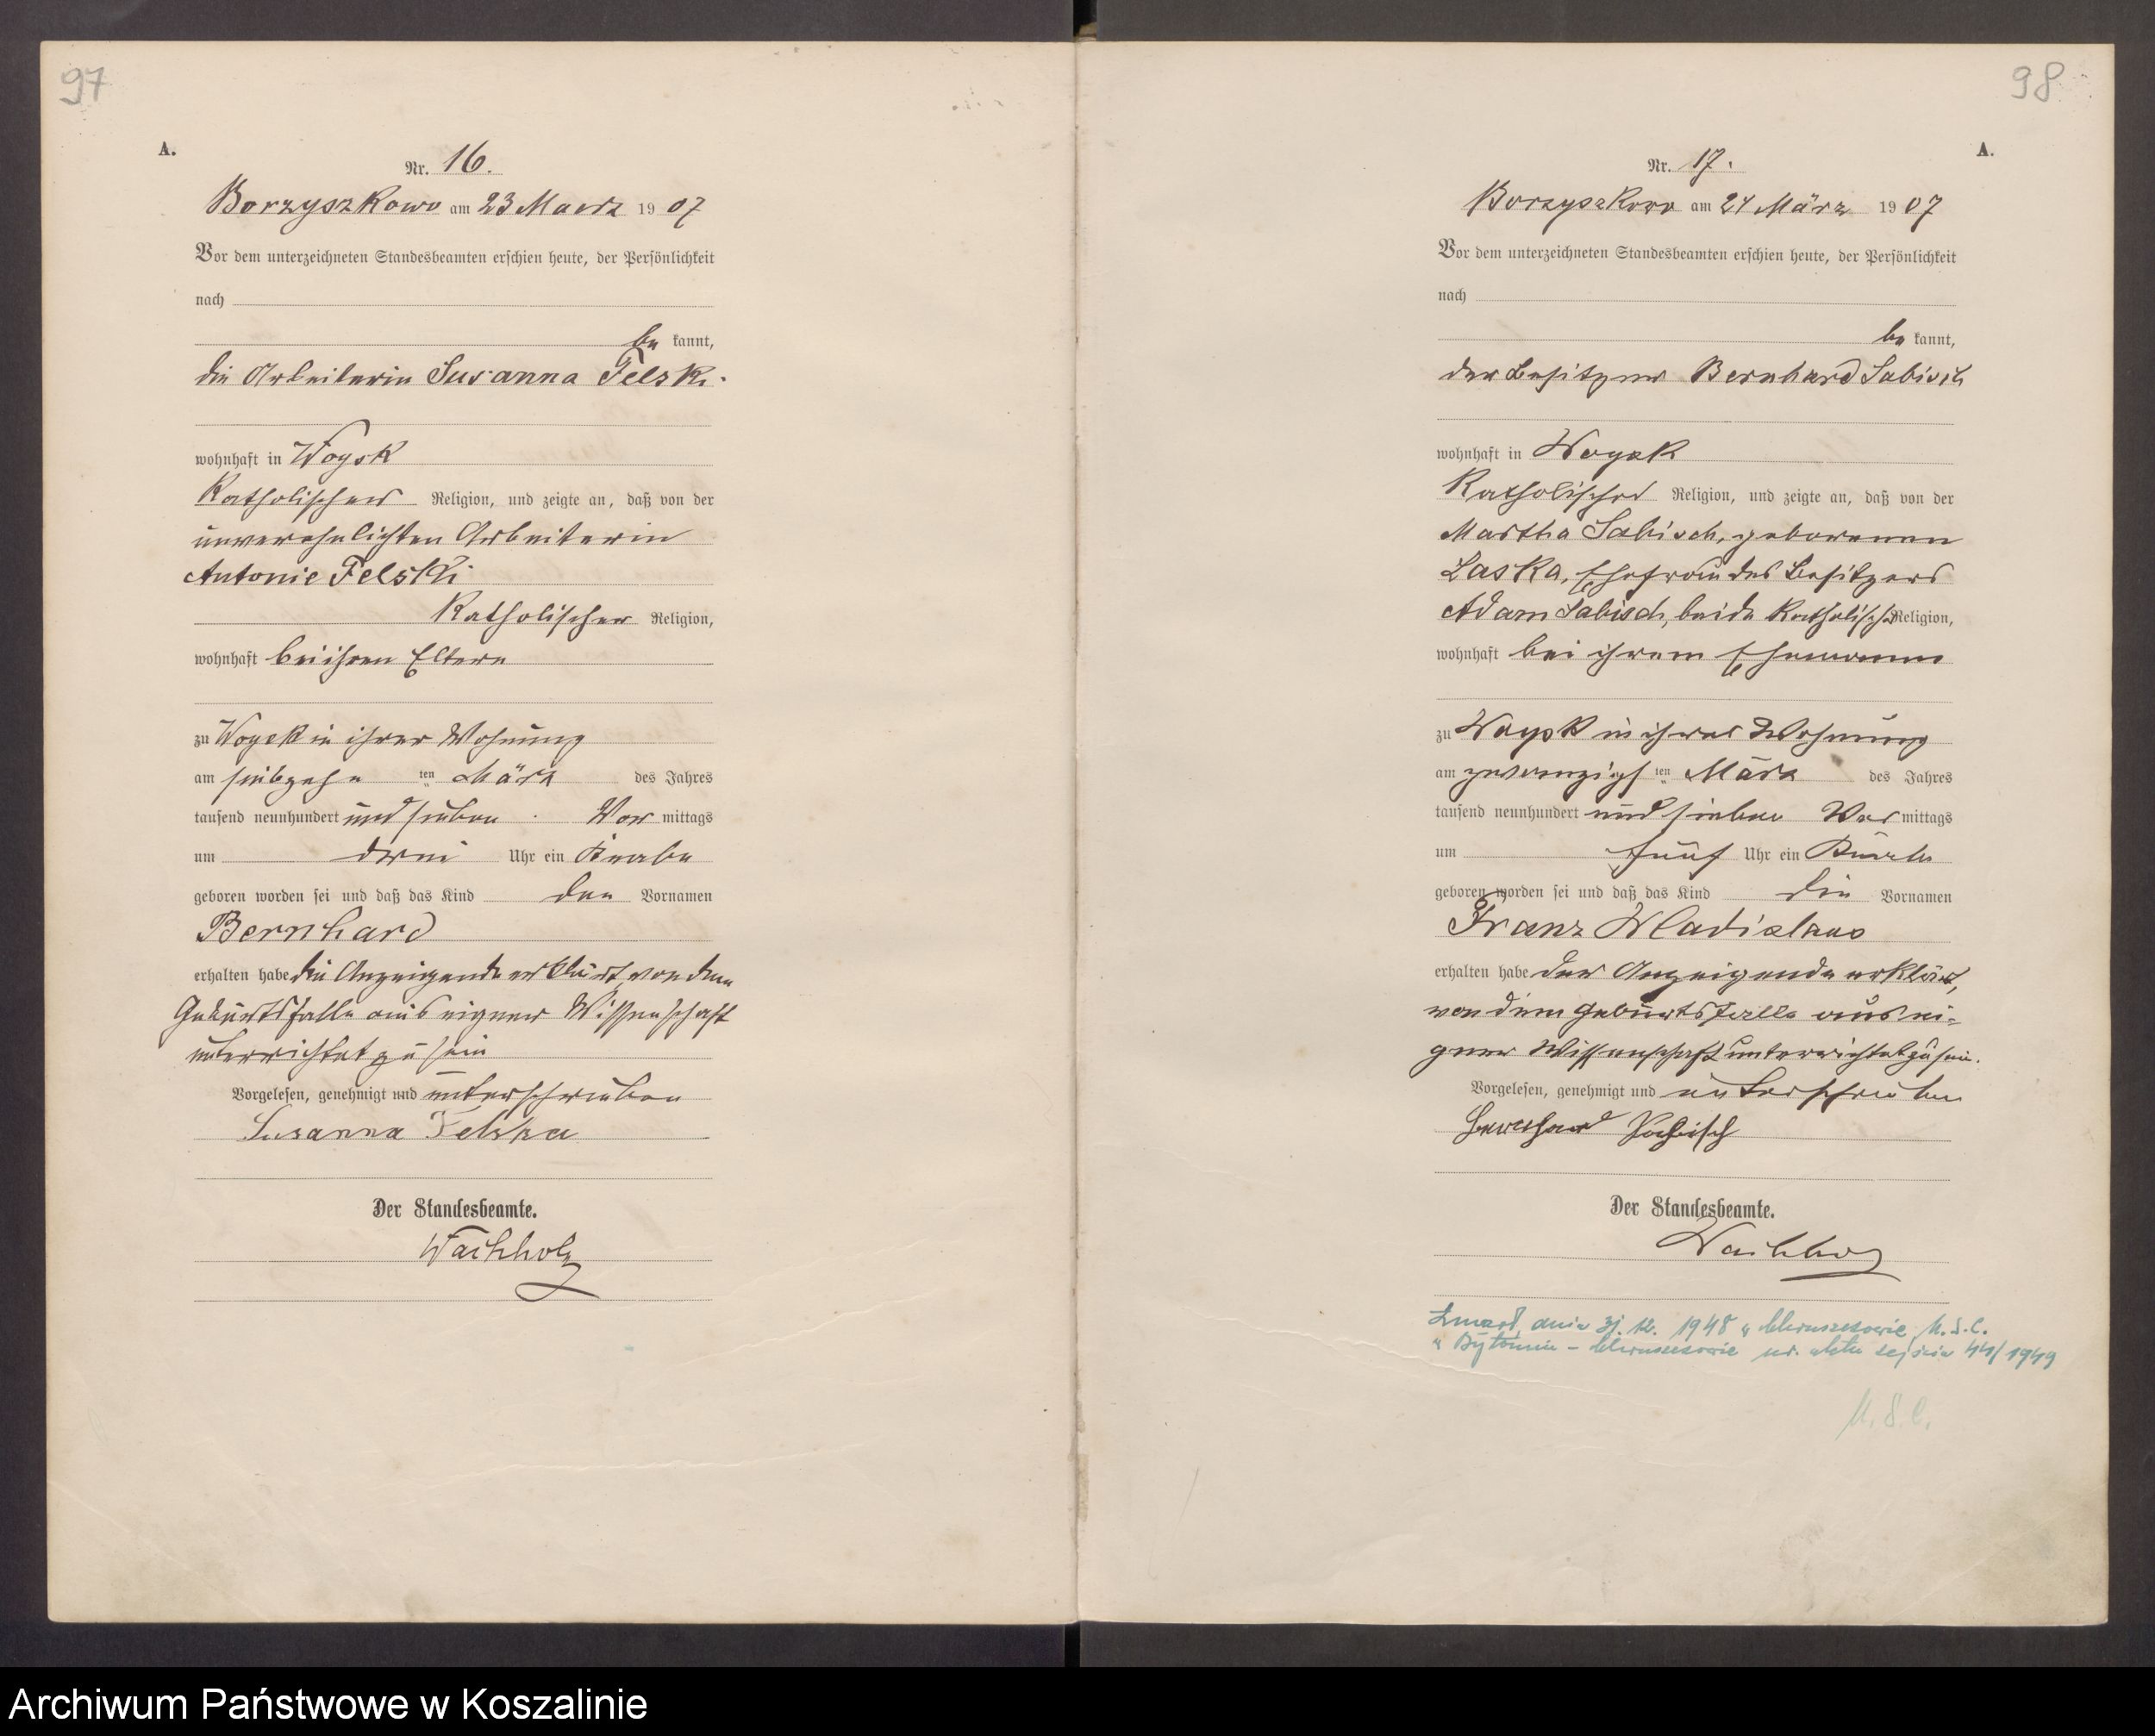 97
A.
Nr. 16.
Borzyszkowo am 23 Maerz 1907
Vor dem unterzeichneten Standesbeamten erschien heute, der Persönlichkeit
nach
be kannt,
die Arbeiterin Susanna Felski
wohnhaft in Woysk
Katholischer Religion, und zeigte an, daß von der
unverehelichten Arbeiterin
Antonie Felski
Katholischer Religion,
wohnhaft bei ihren Eltern
zu Woysk in ihrer Wohnung
am siebzehn ten März des Jahres
tausend neunhundert und sieben Vor mittags
um drei Uhr ein Knabe
geboren worden sei und daß das Kind den Vornamen
Bernhard
erhalten habe die Anzeigende erklärt, von dem
Geburtsfalle aus eigner Wissenschaft
unterrichtet zu sein
Vorgelesen, genehmigt und unterschrieben
Susanna Felska
Der Standesbeamte.
Wachholz
98
A.
Nr. 17.
Borzyszkowo am 24 März 1907
Vor dem unterzeichneten Standesbeamten erschien heute, der Persönlichkeit
nach
be kannt,
der Besitzer Bernhard Sabisch
wohnhaft in Woysk
Katholischer Religion, und zeigte an, daß von der
Martha Sabisch, geborenen
Laska, Ehefrau des Besitzers
Adam Sabisch, beide Katholischer Religion,
wohnhaft bei ihrem Ehemann
zu Woysk in ihrer Wohnung
am zwanzigs ten März des Jahres
tausend neunhundert und sieben Vor mittags
um fünf Uhr ein
geboren worden sei und daß das Kind die Vornamen
Franz Wladislaus
erhalten habe der Anzeigende erklärt,
von dem Geburtsfalle aus ei-
gner Wissenschaft unterrichtet zu sein.
Vorgelesen, genehmigt und unterschrieben
Bernhard Sabisch
Der Standesbeamte.
Wachholz
Zmarł dnia 31. 12. 1948 w U.S.C.
w Bytomiu - nr. aktu zejścia 44/1949
U.S.C.
Archiwum Państwowe w Koszalinie